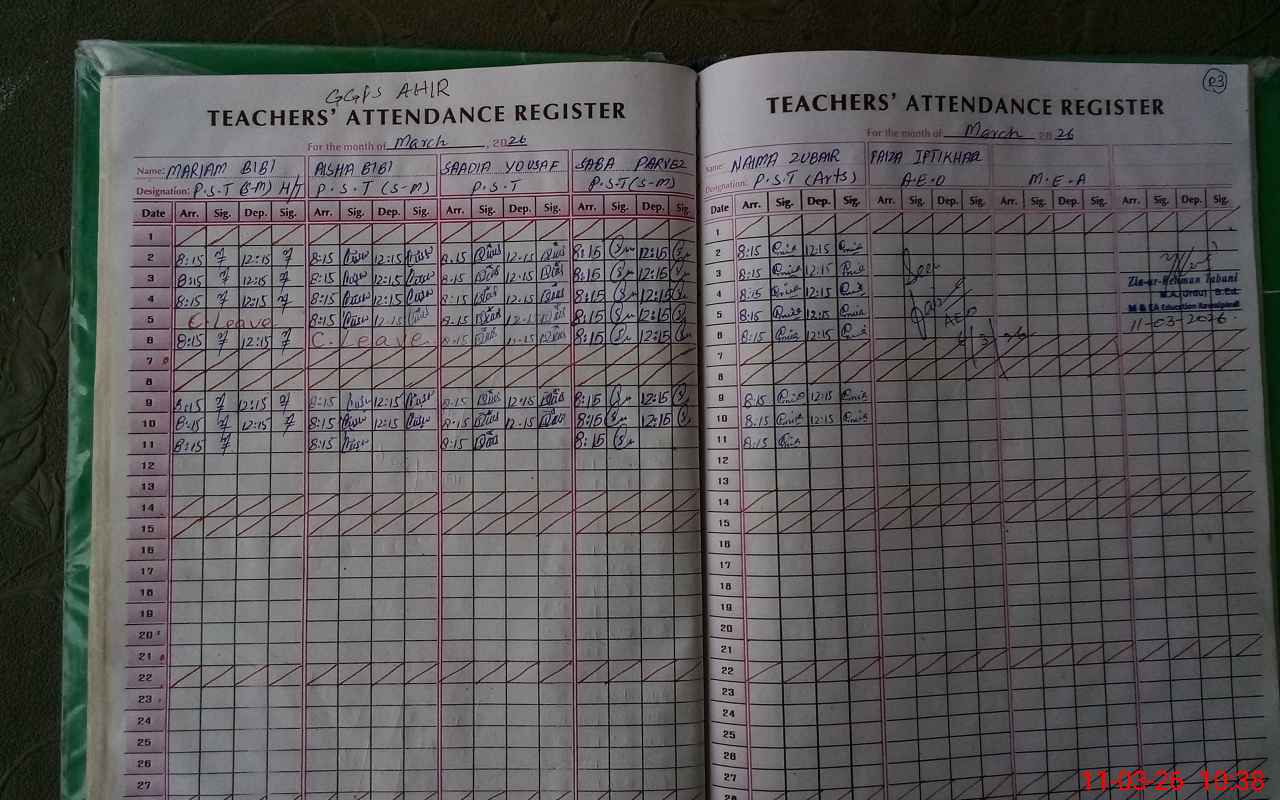 GGPS AHIR
TEACHERS' ATTENDANCE REGISTER
For the month of March, 2026
Name: MARIAM BIBI AISHA BIBI SAADIA YOUSAF SABA PARVEZ
Designation: P.S.T (S-M) H/T P.S.T (S-M) P.S.T P.S.T (S-M)
Date Arr. Sig. Dep. Sig. Arr. Sig. Dep. Sig. Arr. Sig. Dep. Sig. Arr. Sig. Dep. Sig.
1
2 8:15 12:15 8:15 12:15 8:15 12:15 8:15 12:15
3 8:15 12:15 8:15 12:15 8:15 12:15 8:15 12:15
4 8:15 12:15 8:15 12:15 8:15 12:15 8:15 12:15
5 C.Leave 8:15 12:15 8:15 12:15 8:15 12:15
6 8:15 12:15 C.Leave 8:15 12:15 8:15 12:15
7
8
9 8:15 12:15 8:15 12:15 8:15 12:15 8:15 12:15
10 8:15 12:15 8:15 12:15 8:15 12:15 8:15 12:15
11 8:15 8:15 8:15 8:15
12
13
14
15
16
17
18
19
20
21
22
23
24
25
26
27
03
TEACHERS' ATTENDANCE REGISTER
For the month of March 2026
Name: NAIMA ZUBAIR FAIZA IFTIKHAR
Designation: P.S.T (Arts) A.E.O M.E.A
Date Arr. Sig. Dep. Sig. Arr. Sig. Dep. Sig. Arr. Sig. Dep. Sig. Arr. Sig. Dep. Sig.
1
2 8:15 12:15
3 8:15 12:15
4 8:15 12:15
5 8:15 12:15
6 8:15 12:15
7
8
9 8:15 12:15
10 8:15 12:15
11 8:15
12
13
14
15
16
17
18
19
20
21
22
23
24
25
26
27
28
AEO
Zia-ur-Rehman
M.A. (Urdu) B.Ed.
11-03-2026.
11-03-26 10:38